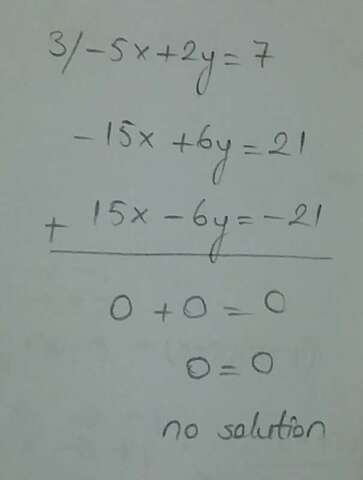 3/-5x+2y=7
-15x+6y=21
+ 15x-6y=-21
0+0=0
0=0
no solution